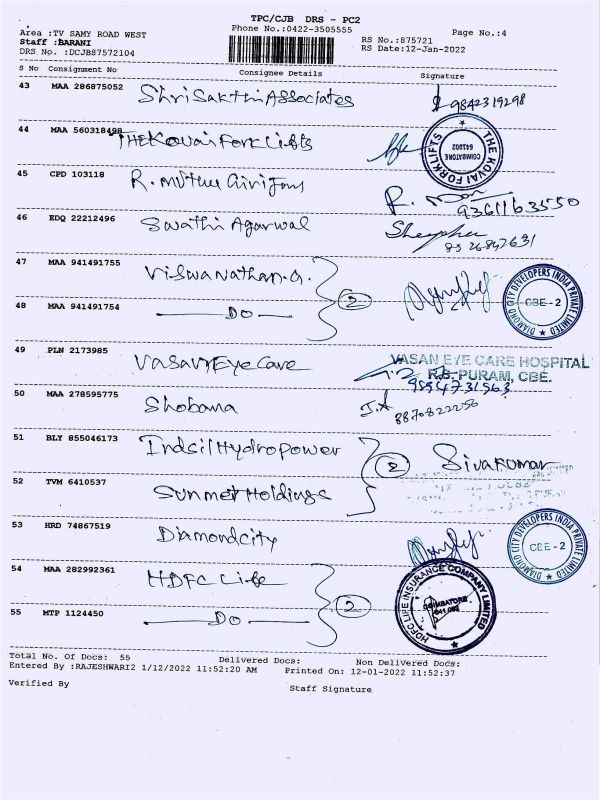 TPC/CJB DRS - PC2
Area :TV SAMY ROAD WEST Phone No.:0422-3505555 Page No.:4
Staff :BARANI RS No.:875721
DRS No. :DCJB87572104 RS Date:12-Jan-2022
S No Consignment No Consignee Details Signature
43 MAA 286875052 Shri Sakthi Associates 9842319298
44 MAA 560318498 THE Kovai Fork Lifts
THE KOVAI FORKLIFTS COIMBATORE 641002
45 CPD 103118 R.
9361163550
46 EDQ 22212496 Swathi Agarwal
8526892631
47 MAA 941491755 Viswanathan.G.
2
DIAMOND CITY DEVELOPERS INDIA PRIVATE LIMITED CBE-2
48 MAA 941491754 DO
49 PLN 2173985 Vasan Eye Care
VASAN EYE CARE HOSPITAL
R.S. PURAM, CBE.
50 MAA 278595775 Shobana
51 BLY 855046173 Indsil Hydropower
2 Sivakumar
52 TVM 6410537 Sunmet Holdings
53 HRD 74867519 Diamondcity
DIAMOND CITY DEVELOPERS INDIA PRIVATE LIMITED CBE-2
54 MAA 282992361 HDFC Life
2
HDFC LIFE INSURANCE COMPANY LIMITED COIMBATORE
55 MTP 1124450 DO
Total No. Of Docs: 55 Delivered Docs: Non Delivered Docs:
Entered By :RAJESHWARI2 1/12/2022 11:52:20 AM Printed On: 12-01-2022 11:52:37
Verified By Staff Signature